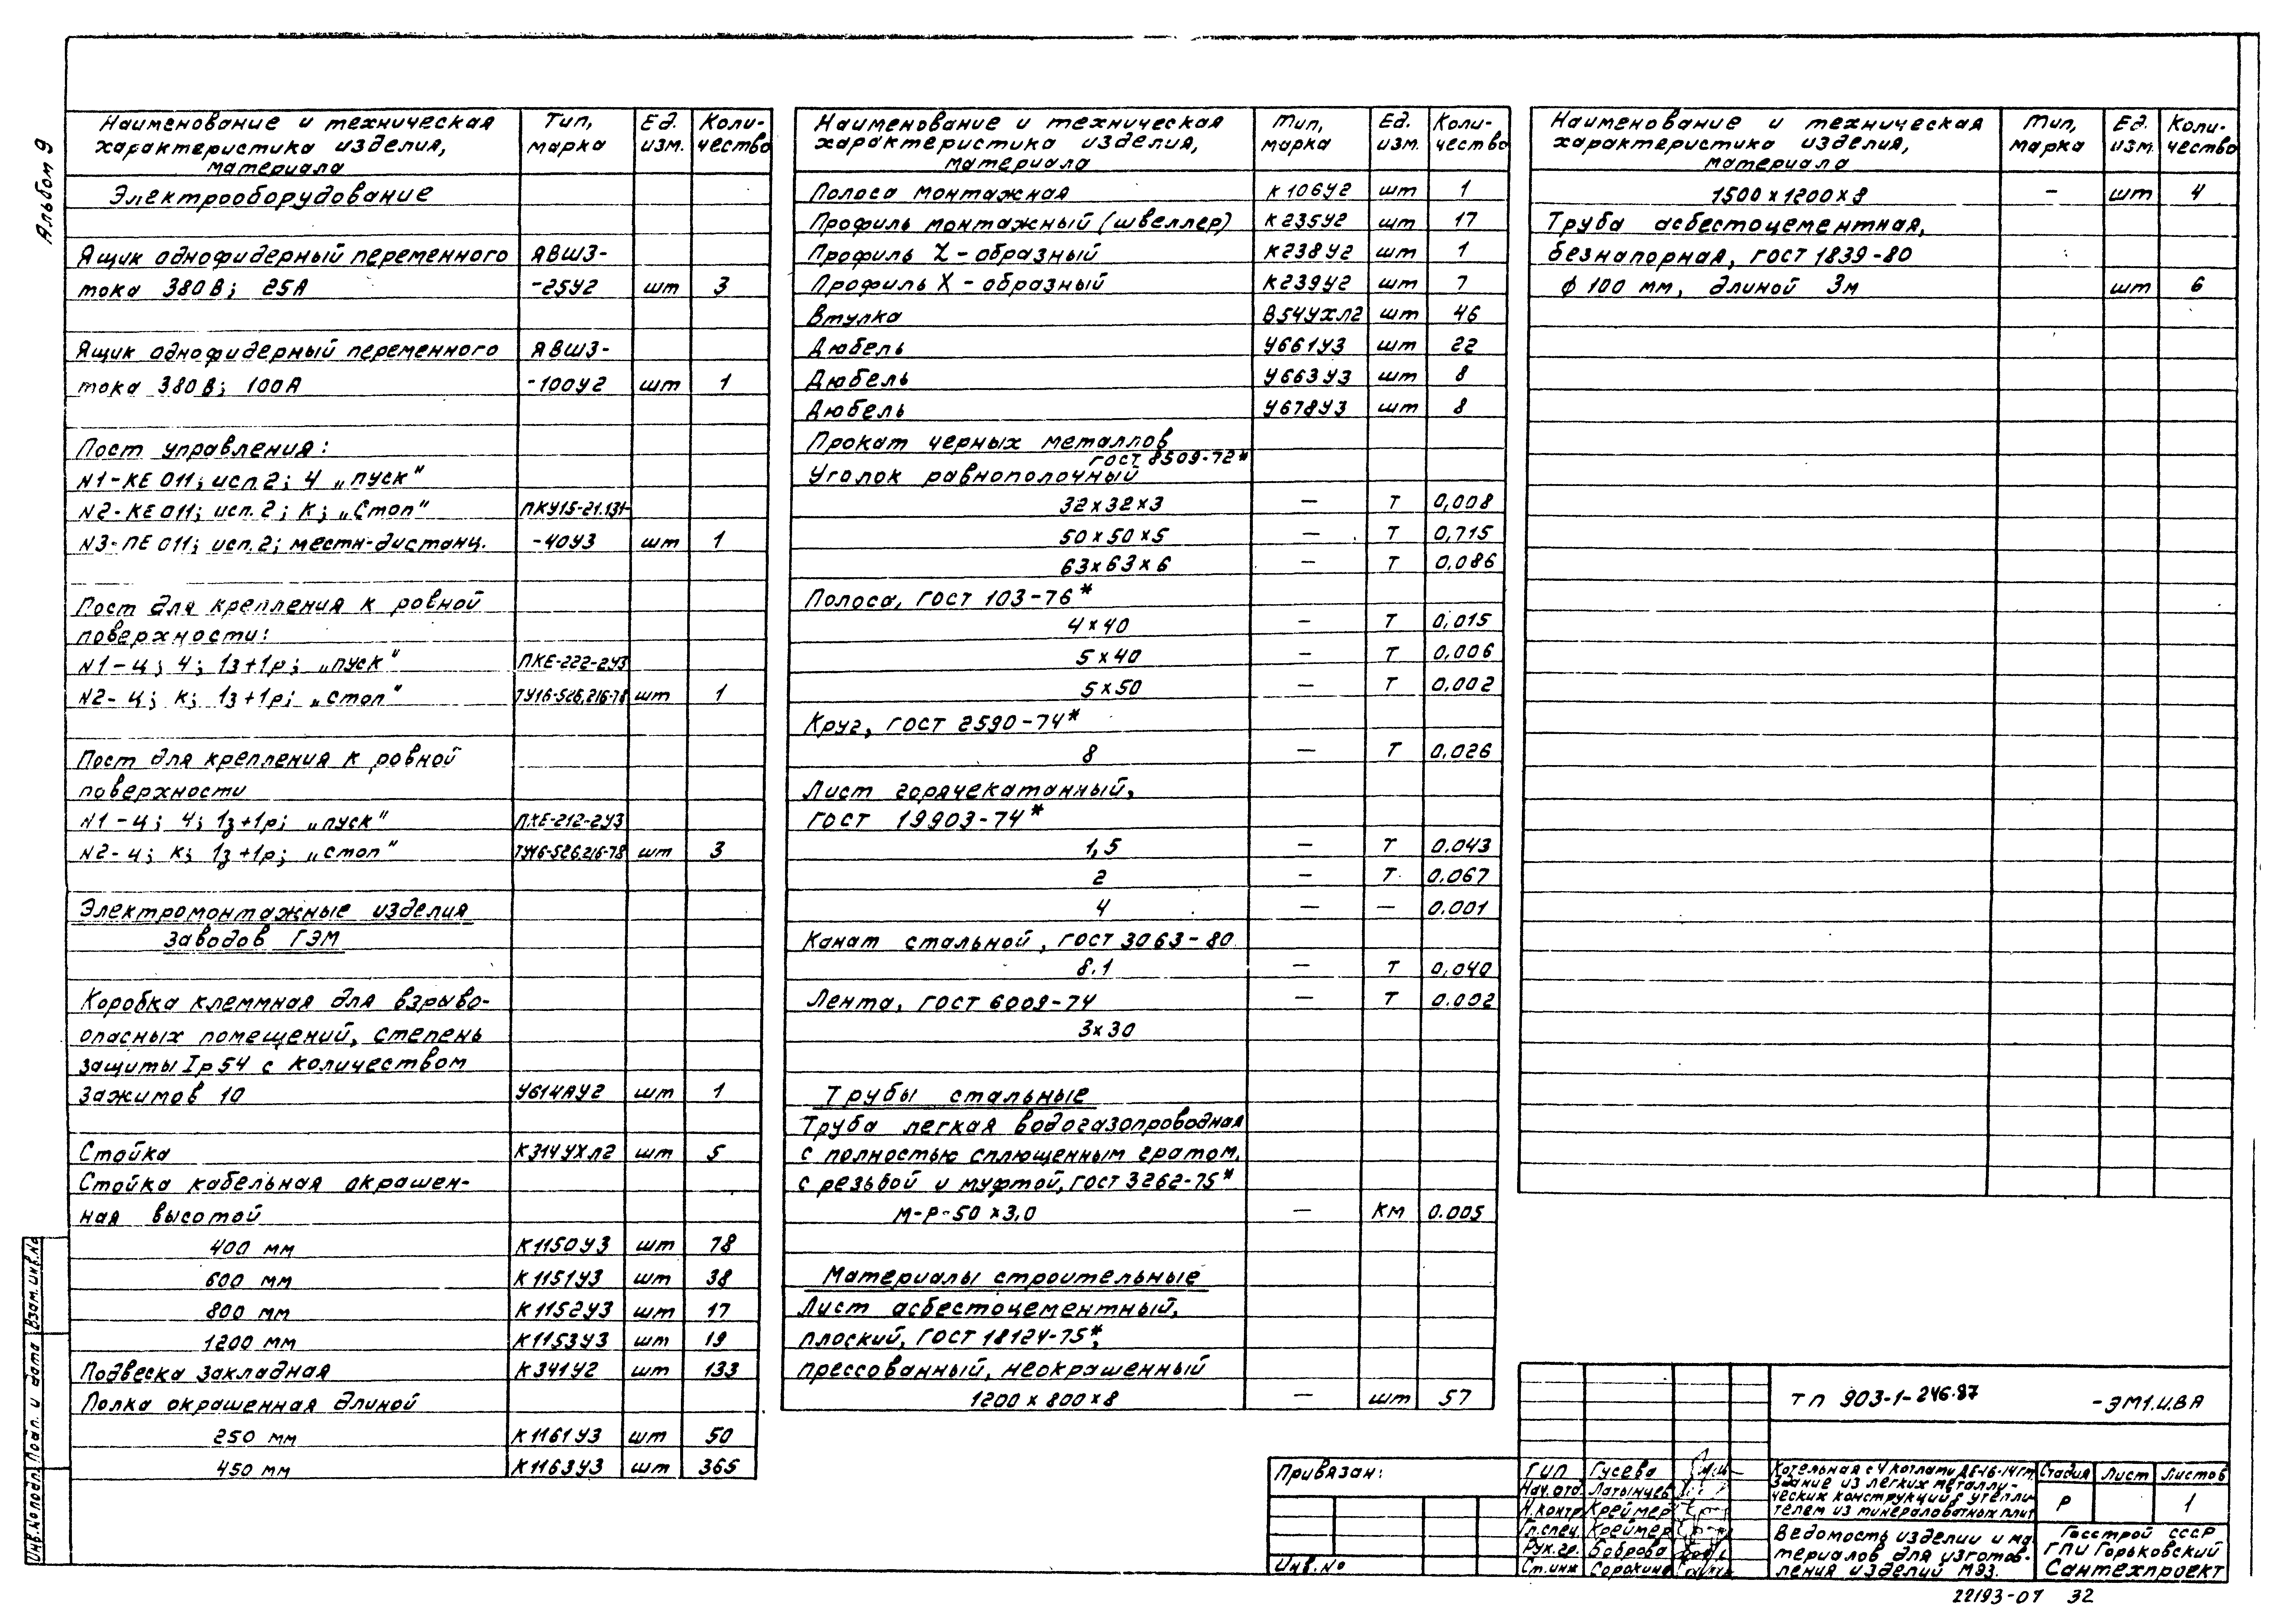 Альбом 9
Наименование и техническая характеристика изделия, материала | Тип, марка | Ед. изм. | Коли-чество
Электрооборудование
Ящик однофидерный переменного | ЯВШ3-
тока 380 В; 25А | -25У2 | шт | 3
Ящик однофидерный переменного | ЯВШ3-
тока 380 В; 100А | -100У2 | шт | 1
Пост управления:
N1-КЕ 011; исп 2; Ч „пуск"
N2-КЕ 011; исп. 2; К; „Стоп" | ПКУ15-21.131-
N3-ПЕ 011; исп. 2; местн-дистанц. | -40У3 | шт | 1
Пост для крепления к ровной
поверхности:
N1-ц; Ч; 1з+1р; „пуск" | ПКЕ-222-2У3
N2-ц; К; 1з+1р; „стоп" | ТУ16-526.216-78 | шт | 1
Пост для крепления к ровной
поверхности
N1-ц; Ч; 1з+1р; „пуск" | ПКЕ-212-2У3
N2-ц; К; 1з+1р; „стоп" | ТУ16-526.216-78 | шт | 3
Электромонтажные изделия
заводов ГЭМ
Коробка клеммная для взрыво-
опасных помещений, степень
защиты Ip 54 с количеством
зажимов 10 | У614АУ2 | шт | 1
Стойка | К314УХЛ2 | шт | 5
Стойка кабельная окрашен-
ная высотой
400 мм | К1150У3 | шт | 78
600 мм | К1151У3 | шт | 38
800 мм | К1152У3 | шт | 17
1200 мм | К1153У3 | шт | 19
Подвеска закладная | К341У2 | шт | 133
Полка окрашенная длиной
250 мм | К1161У3 | шт | 50
450 мм | К1163У3 | шт | 365
Наименование и техническая характеристика изделия, материала | Тип, марка | Ед. изм. | Коли-чество
Полоса монтажная | К106У2 | шт | 1
Профиль монтажный (швеллер) | К235У2 | шт | 17
Профиль Z-образный | К238У2 | шт | 1
Профиль X-образный | К239У2 | шт | 7
Втулка | В54УХЛ2 | шт | 46
Дюбель | У661У3 | шт | 22
Дюбель | У663У3 | шт | 8
Дюбель | У678У3 | шт | 8
Прокат черных металлов
Уголок равнополочный ГОСТ 8509-72*
32х32х3 | — | Т | 0,008
50х50х5 | — | Т | 0,715
63х63х6 | — | Т | 0,086
Полоса, ГОСТ 103-76*
4х40 | — | Т | 0,015
5х40 | — | Т | 0,006
5х50 | — | Т | 0,002
Круг, ГОСТ 2590-74*
8 | — | Т | 0.026
Лист горячекатанный,
ГОСТ 19903-74*
1,5 | — | Т | 0.043
2 | — | Т | 0.067
4 | — | — | 0.001
Канат стальной, ГОСТ 3063-80
8.1 | — | Т | 0,040
Лента, ГОСТ 6009-74 | — | Т | 0.002
3х30
Трубы стальные
Труба легкая водогазопроводная
с полностью сплющенным гратом,
с резьбой и муфтой, ГОСТ 3262-75*
М-Р-50х3,0 | — | км | 0.005
Материалы строительные
Лист асбестоцементный,
плоский, ГОСТ 18124-75*,
прессованный, неокрашенный
1200х800х8 | — | шт | 57
Наименование и техническая характеристика изделия, материала | Тип, марка | Ед. изм. | Коли-чество
1500х1200х8 | — | шт | 4
Труба асбестоцементная,
безнапорная, ГОСТ 1839-80
ф 100 мм, длиной 3м | шт | 6
Взам. инв. №
Подп. и дата
Инв. № подл.
Привязан:
Инв. №
ТП 903-1-246.87 -ЭМ1.И.ВА
ГИП Гусева
Нач. отд. Латынцев
Н. контр Креймер
Гл. спец. Креймер
Рук. гр. Боброва
Ст. инж Сорокина
Котельная с 4 котлами ДЕ-16-14гм.
Здание из легких металли-
ческих конструкций с утепли-
телем из минераловатных плит
Стадия | Лист | Листов
Р | 1
Ведомость изделий и ма-
териалов для изготов-
ления изделий МЭЗ.
Госстрой СССР
ГПИ Горьковский
Сантехпроект
22193-07 32